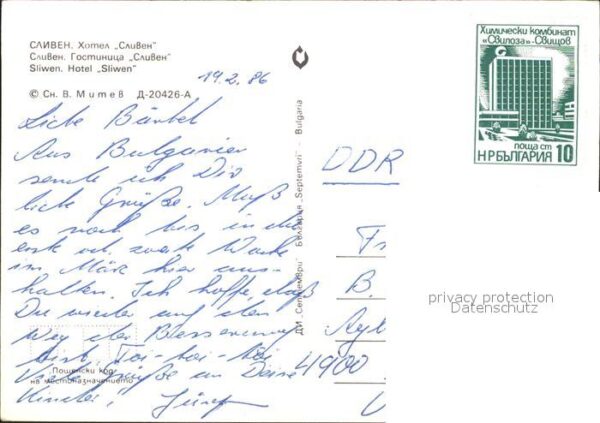 СЛИВЕН. Хотел „Сливен"
Сливен. Гостиница „Сливен"
Sliwen. Hotel „Sliwen"
© Сн. В. Митев Д-20426-А
19.2.86
Liebe Bärbel
Aus Bulgarien
sende ich Dir
liebe Grüße. Muß
es noch bis, in die
erste od. zweite Woche
im März hier aus-
halten. Ich hoffe, daß
Du wieder auf dem
Weg der Besserung
bist. Toi-toi-toi
Viele Grüße an Deine
Kinder,
Пощенски код
на местоназначението
ДИ „Септември" България „Septemvri" - Bulgaria
Химически комбинат
„Свилоза"-Свищов
поща ст
НР БЪЛГАРИЯ 10
DDR
F
B.
4900
privacy protection
Datenschutz